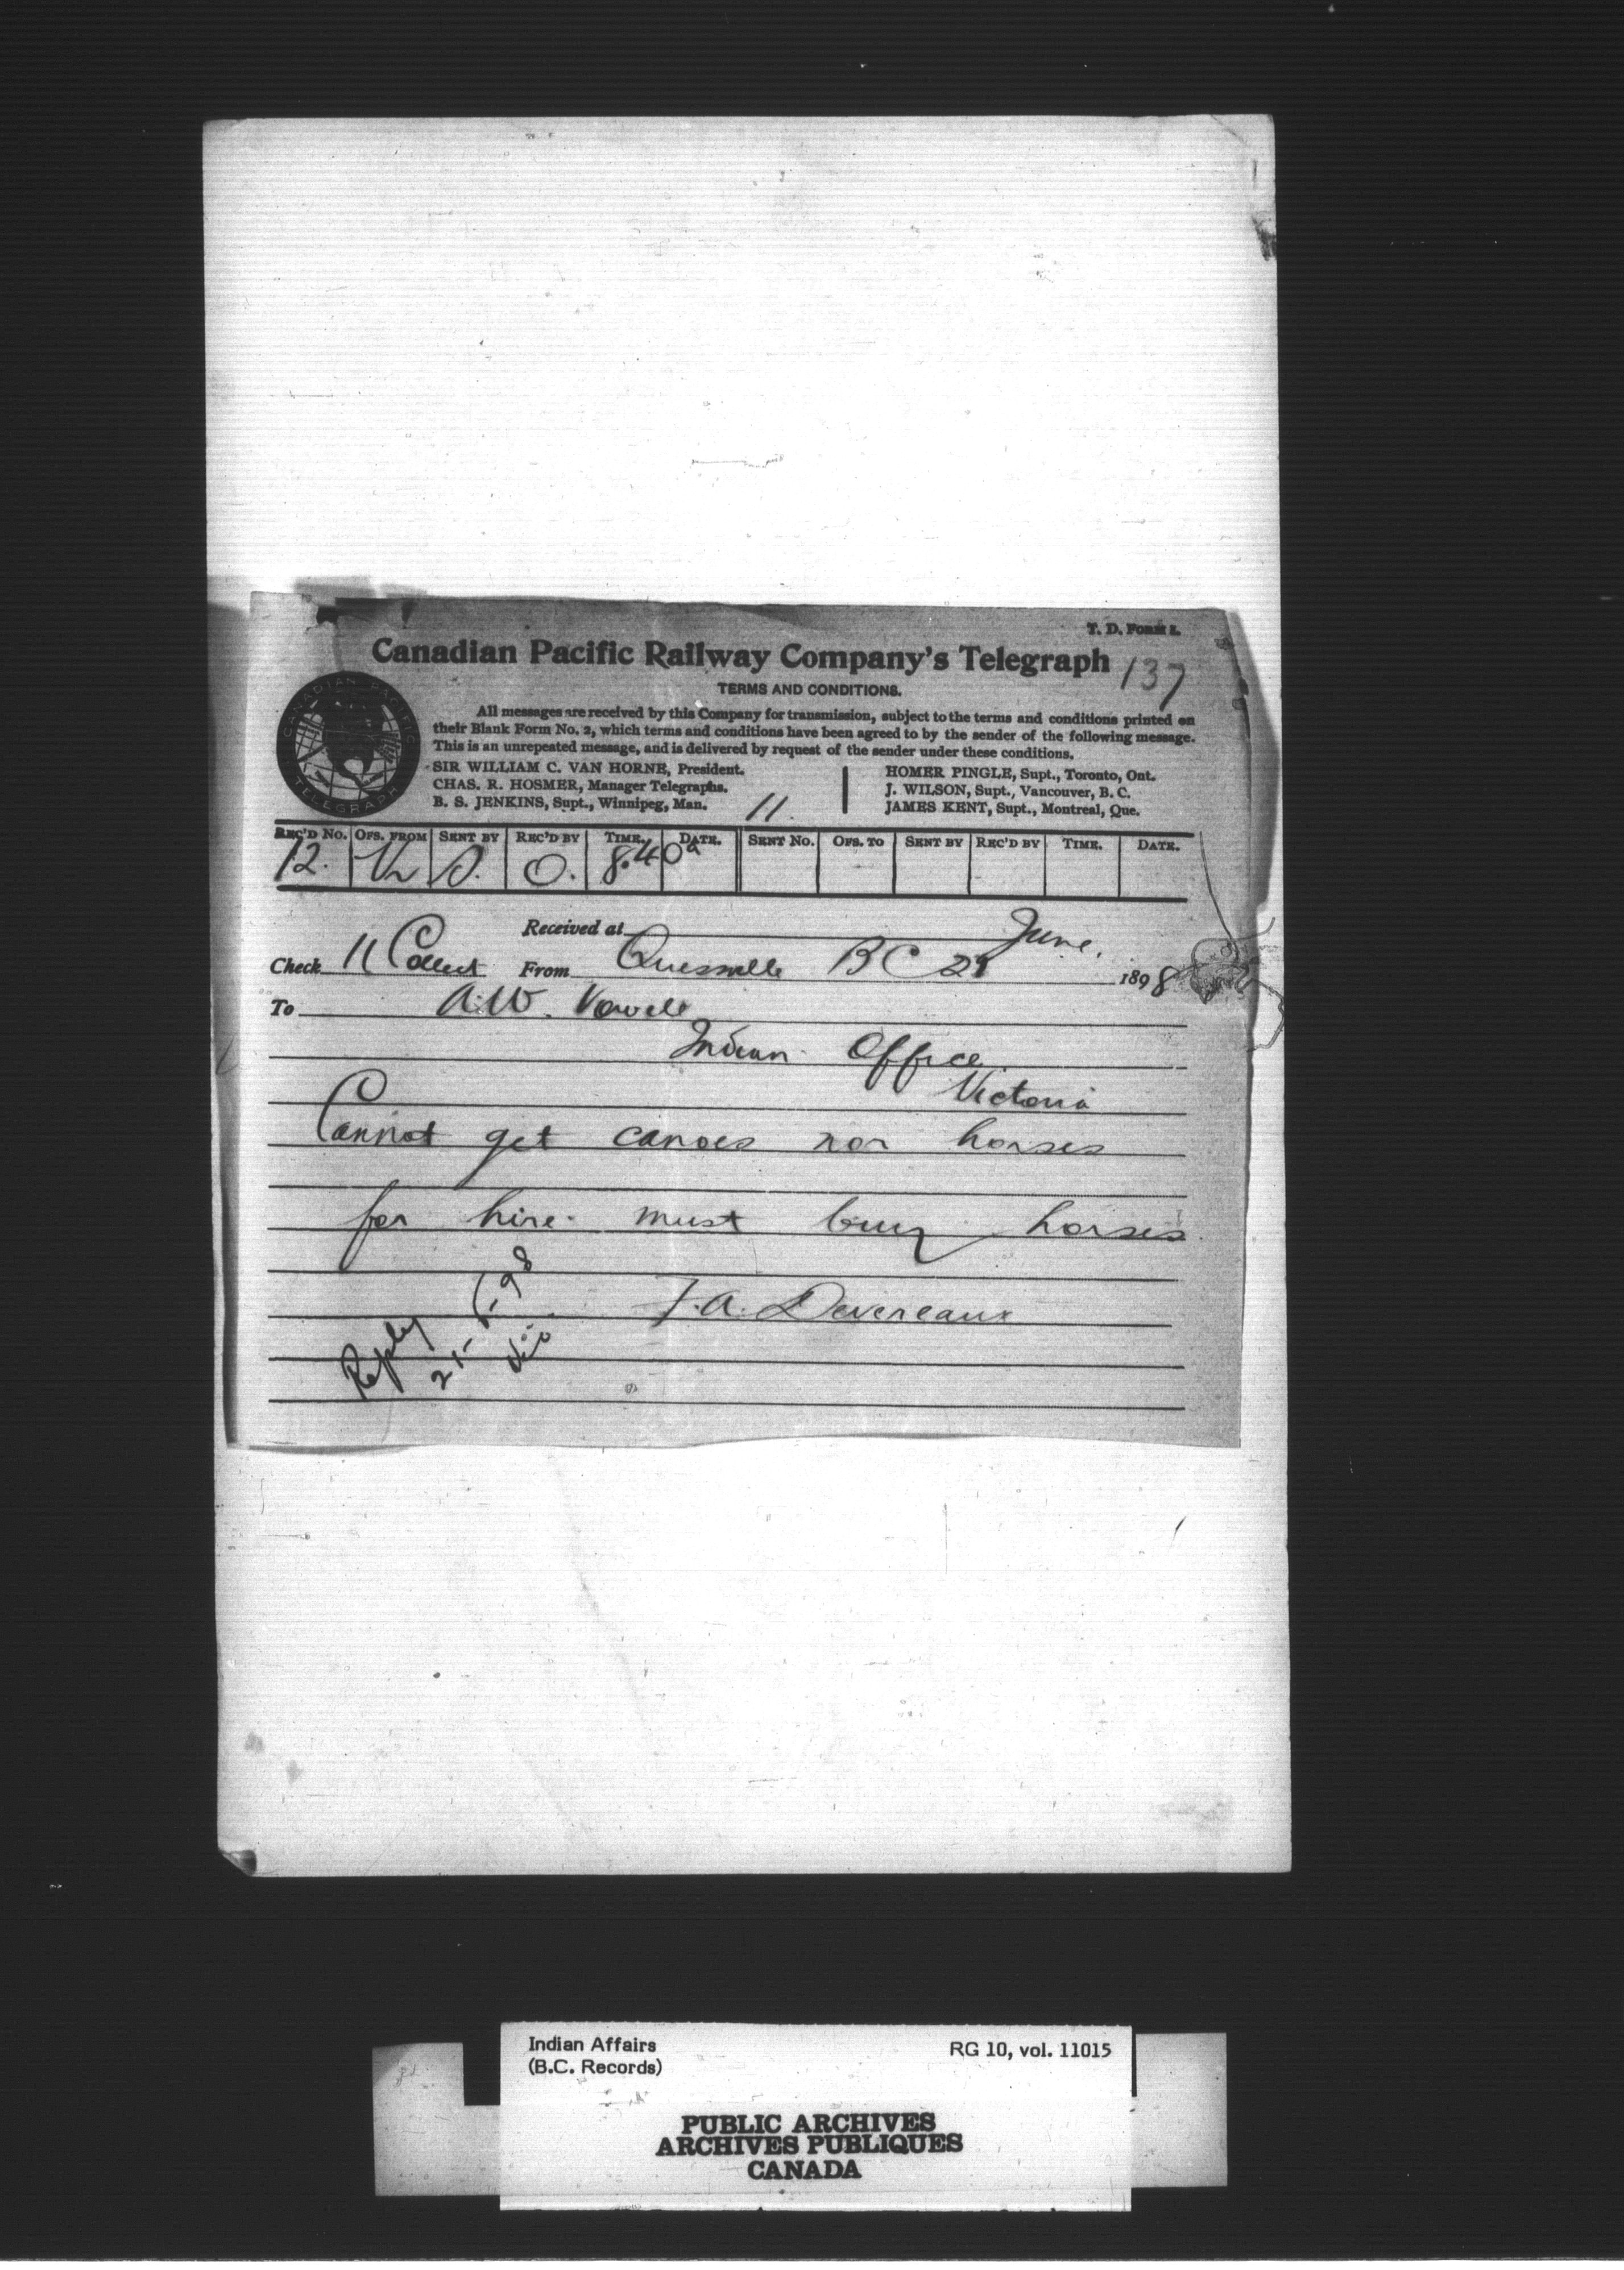 T. D. FORM 1.
Canadian Pacific Railway Company's Telegraph
137
TERMS AND CONDITIONS.
CANADIAN PACIFIC
TELEGRAPH
All messages are received by this Company for transmission, subject to the terms and conditions printed on
their Blank Form No. 2, which terms and conditions have been agreed to by the sender of the following message.
This is an unrepeated message, and is delivered by request of the sender under these conditions.
SIR WILLIAM C. VAN HORNE, President.
CHAS. R. HOSMER, Manager Telegraphs.
B. S. JENKINS, Supt., Winnipeg, Man.
HOMER PINGLE, Supt., Toronto, Ont.
J. WILSON, Supt., Vancouver, B. C.
JAMES KENT, Supt., Montreal, Que.
11.
REC'D NO. OFS. FROM SENT BY REC'D BY TIME. DATE. SENT NO. OFS. TO SENT BY REC'D BY TIME. DATE.
12. O. 8.40a
Received at June.
Check 11 Collect From Quesnelle BC 21 1898
To A.W. Vowell
Indian Office
Victoria
Cannot get canoes nor horses
for hire. must buy horses
F.A. Devereaux
Reply
21-6-98
Indian Affairs
(B.C. Records)
RG 10, vol. 11015
PUBLIC ARCHIVES
ARCHIVES PUBLIQUES
CANADA